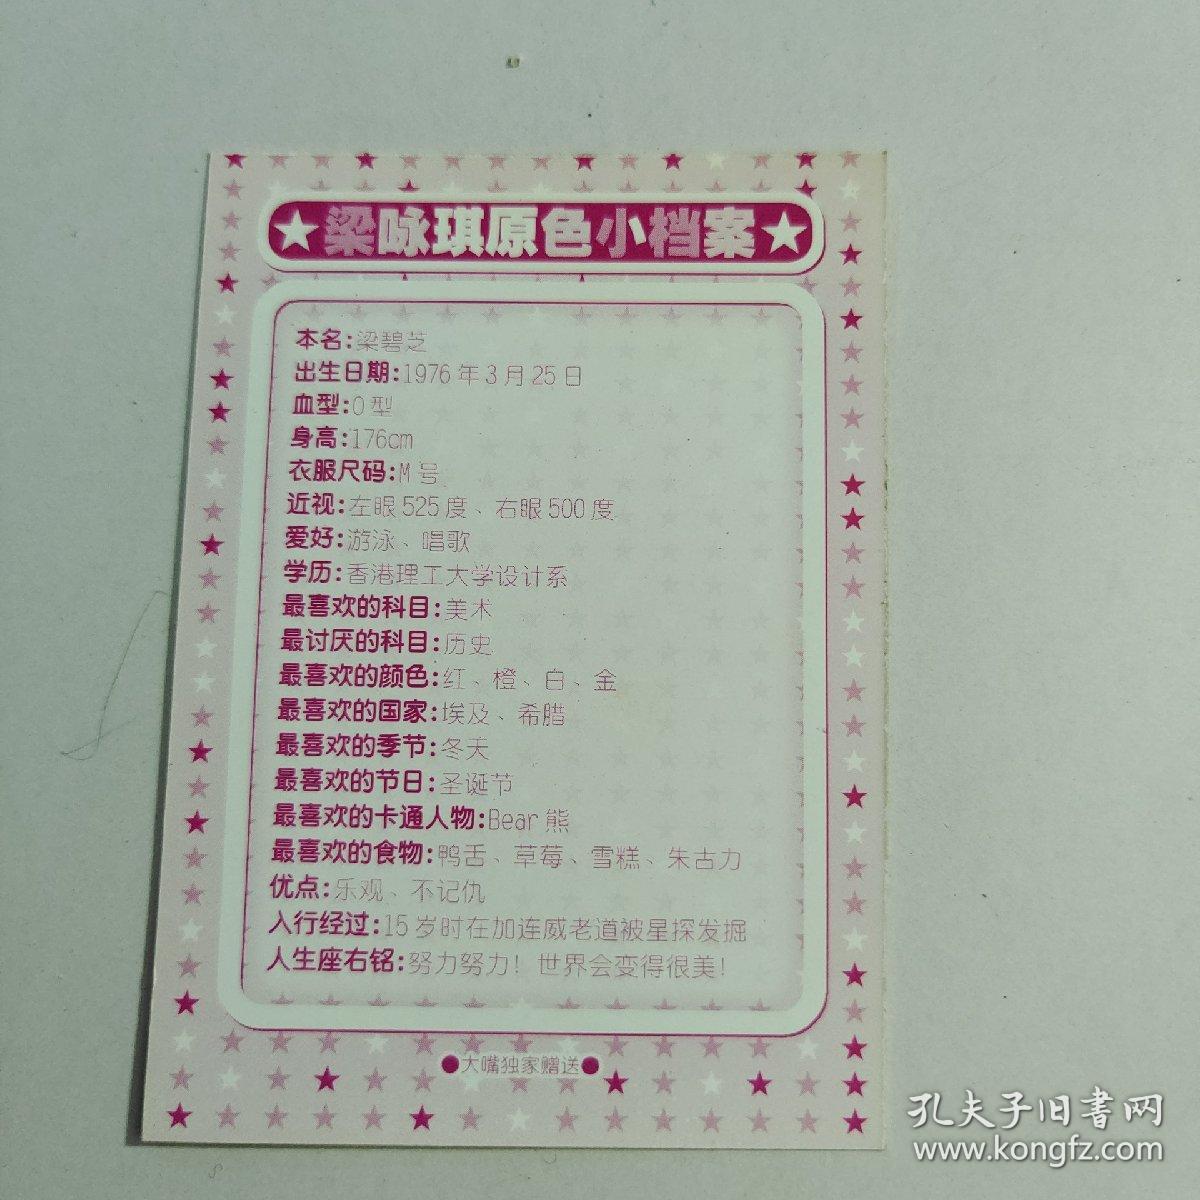 ★梁咏琪原色小档案★
本名:梁碧芝
出生日期:1976年3月25日
血型:O型
身高:176cm
衣服尺码:M号
近视:左眼525度、右眼500度
爱好:游泳、唱歌
学历:香港理工大学设计系
最喜欢的科目:美术
最讨厌的科目:历史
最喜欢的颜色:红、橙、白、金
最喜欢的国家:埃及、希腊
最喜欢的季节:冬天
最喜欢的节日:圣诞节
最喜欢的卡通人物:Bear熊
最喜欢的食物:鸭舌、草莓、雪糕、朱古力
优点:乐观、不记仇
入行经过:15岁时在加连威老道被星探发掘
人生座右铭:努力努力！世界会变得很美！
●大嘴独家赠送●
孔夫子旧书网
www.kongfz.com